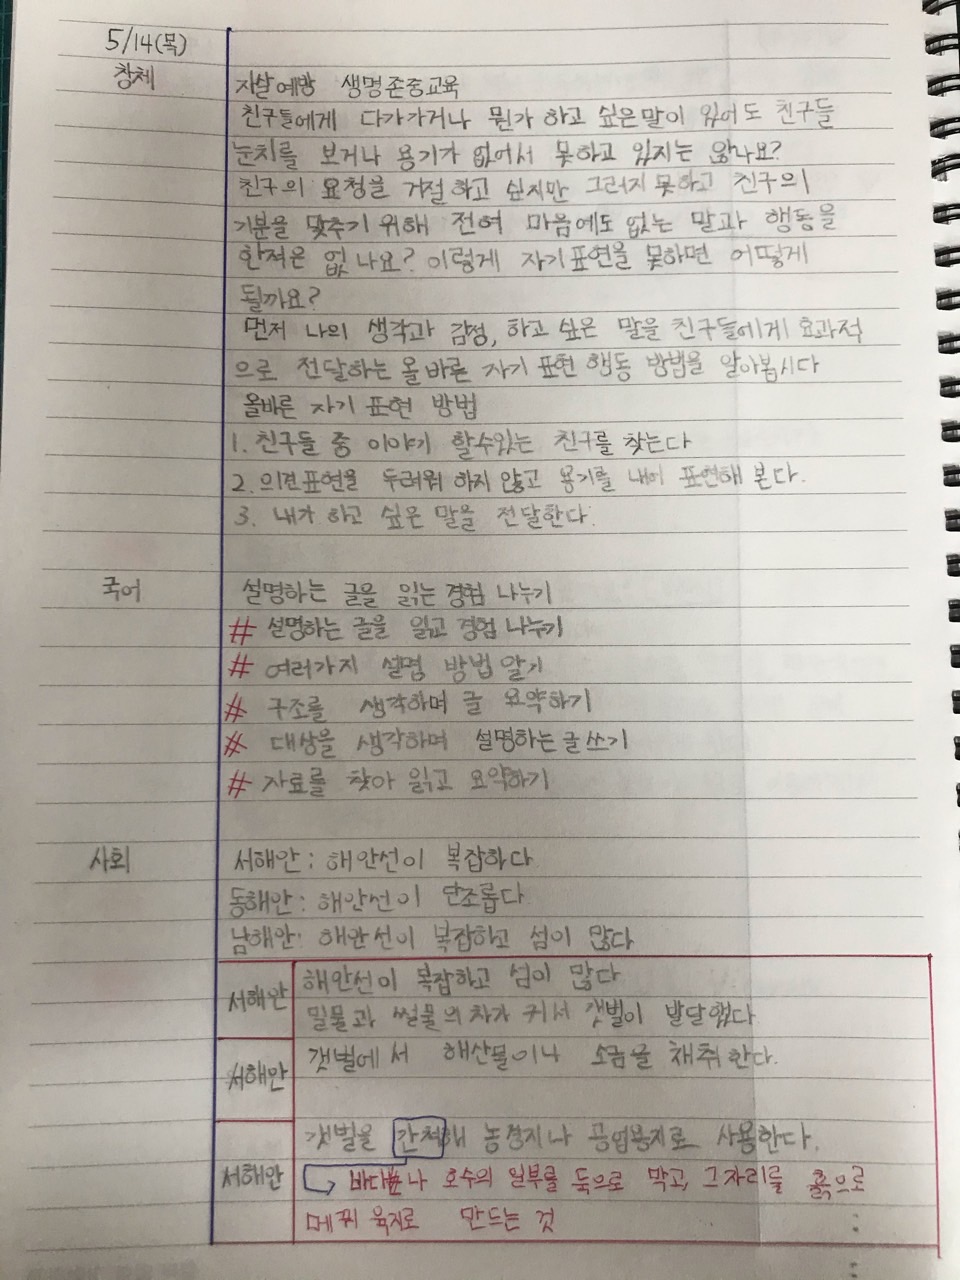 5/14(목)
창체
자살예방 생명존중교육
친구들에게 다가가거나 뭔가 하고 싶은말이 있어도 친구들
눈치를 보거나 용기가 없어서 못하고 있지는 않나요?
친구의 요청을 거절하고 싶지만 그러지못하고 친구의
기분을 맞추기 위해 전혀 마음에도 없는 말과 행동을
한적은 없나요? 이렇게 자기표현을 못하면 어떻게
될까요?
먼저 나의 생각과 감정, 하고 싶은 말을 친구들에게 효과적
으로 전달하는 올바른 자기 표현 행동 방법을 알아봅시다
올바른 자기 표현 방법
1. 친구들 중 이야기 할수있는 친구를 찾는다
2. 의견표현을 두려워 하지 않고 용기를 내어 표현해 본다.
3. 내가 하고 싶은 말을 전달한다.
국어
설명하는 글을 읽는 경험 나누기
# 설명하는 글을 읽고 경험 나누기
# 여러가지 설명 방법 알기
# 구조를 생각하며 글 요약하기
# 대상을 생각하며 설명하는 글 쓰기
# 자료를 찾아 읽고 요약하기
사회
서해안 : 해안선이 복잡하다
동해안 : 해안선이 단조롭다
남해안: 해안선이 복잡하고 섬이 많다
서해안
해안선이 복잡하고 섬이 많다
밀물과 썰물의 차가 커서 갯벌이 발달했다
서해안
갯벌에서 해산물이나 소금을 채취한다.
서해안
갯벌을 간척해 농경지나 공업용지로 사용한다.
바다나 호수의 일부를 둑으로 막고, 그자리를 흙으로
메꿔 육지로 만드는 것